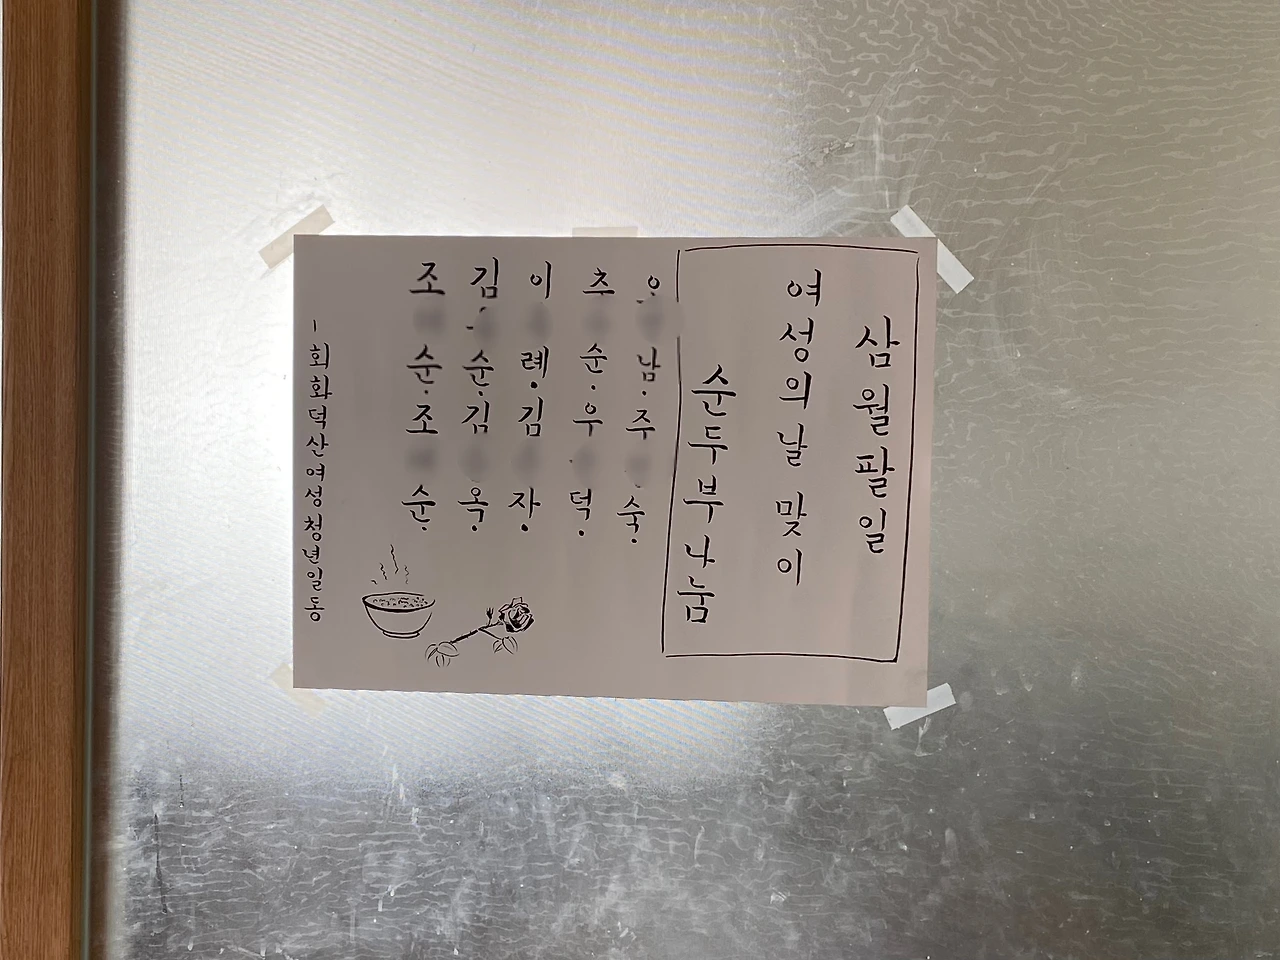 삼월팔일
여성의날 맞이
순두부나눔
남. 주 숙.
추 순. 우 덕.
이 례. 김 장.
김 순. 김 옥.
조 순. 조 순.
- 회화덕산여성청년일동